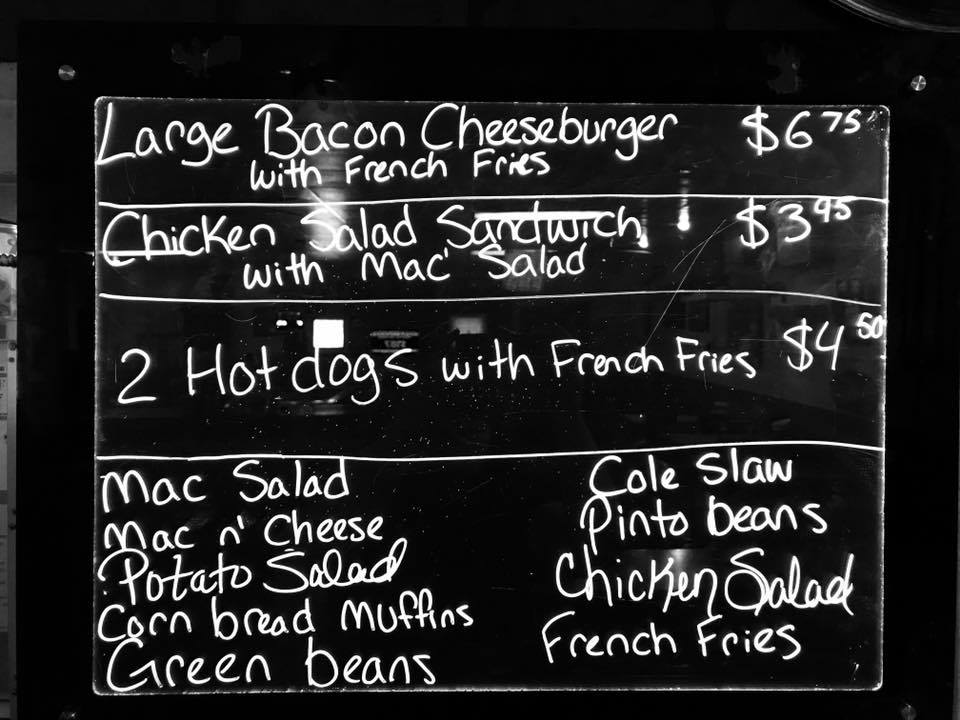 Large Bacon Cheeseburger $6 75
with French Fries
Chicken Salad Sandwich $3 95
with Mac' Salad
2 Hot dogs with French Fries $4 50
Mac Salad
Mac n' Cheese
Potato Salad
Corn bread Muffins
Green beans
Cole Slaw
Pinto beans
Chicken Salad
French Fries